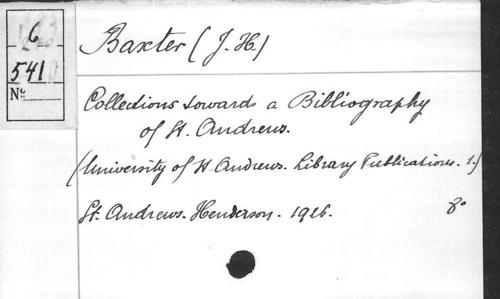 6
541
№
Baxter (J. H.)
Collections towards a Bibliography
of St. Andrews.
(University of St Andrews. Library Publications. 1.)
St. Andrews. Henderson. 1926. 8°